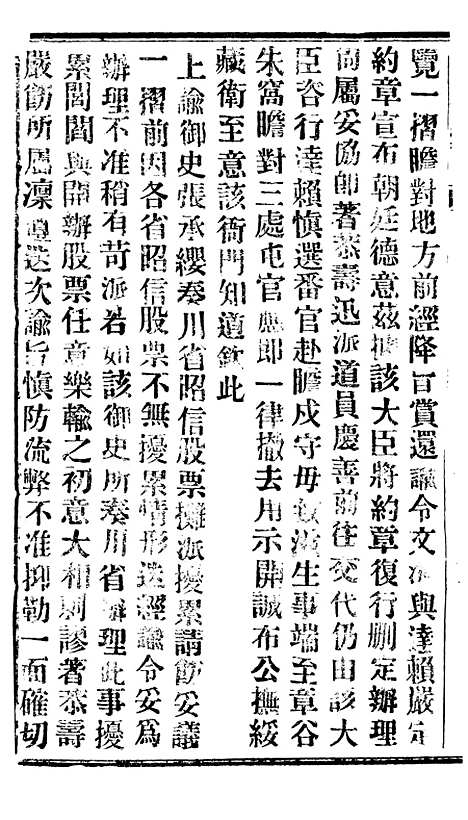 覽一摺瞻對地方前經降旨賞還諭令文海與達賴嚴定
約章宣布朝廷德意茲據該大臣將約章復行刪定辦理
尙屬妥協卽著恭壽迅派道員慶善前往交代仍由該大
臣咨行達賴慎選番官赴瞻戍守毋致滋生事端至章谷
朱窩瞻對三處屯官應卽一律撤去用示開誠布公撫綏
藏衛至意該衙門知道欽此
上諭御史張承纓奏川省昭信股票攤派擾累請飭妥議
一摺前因各省昭信股票不無擾累情形迭經諭令妥爲
辦理不准稍有苛派若如該御史所奏川省辦理此事擾
累閭閻與開辦股票任意樂輸之初意大相剌謬著恭壽
嚴飭所屬凜遵迭次諭旨慎防流弊不准抑勒一面確切